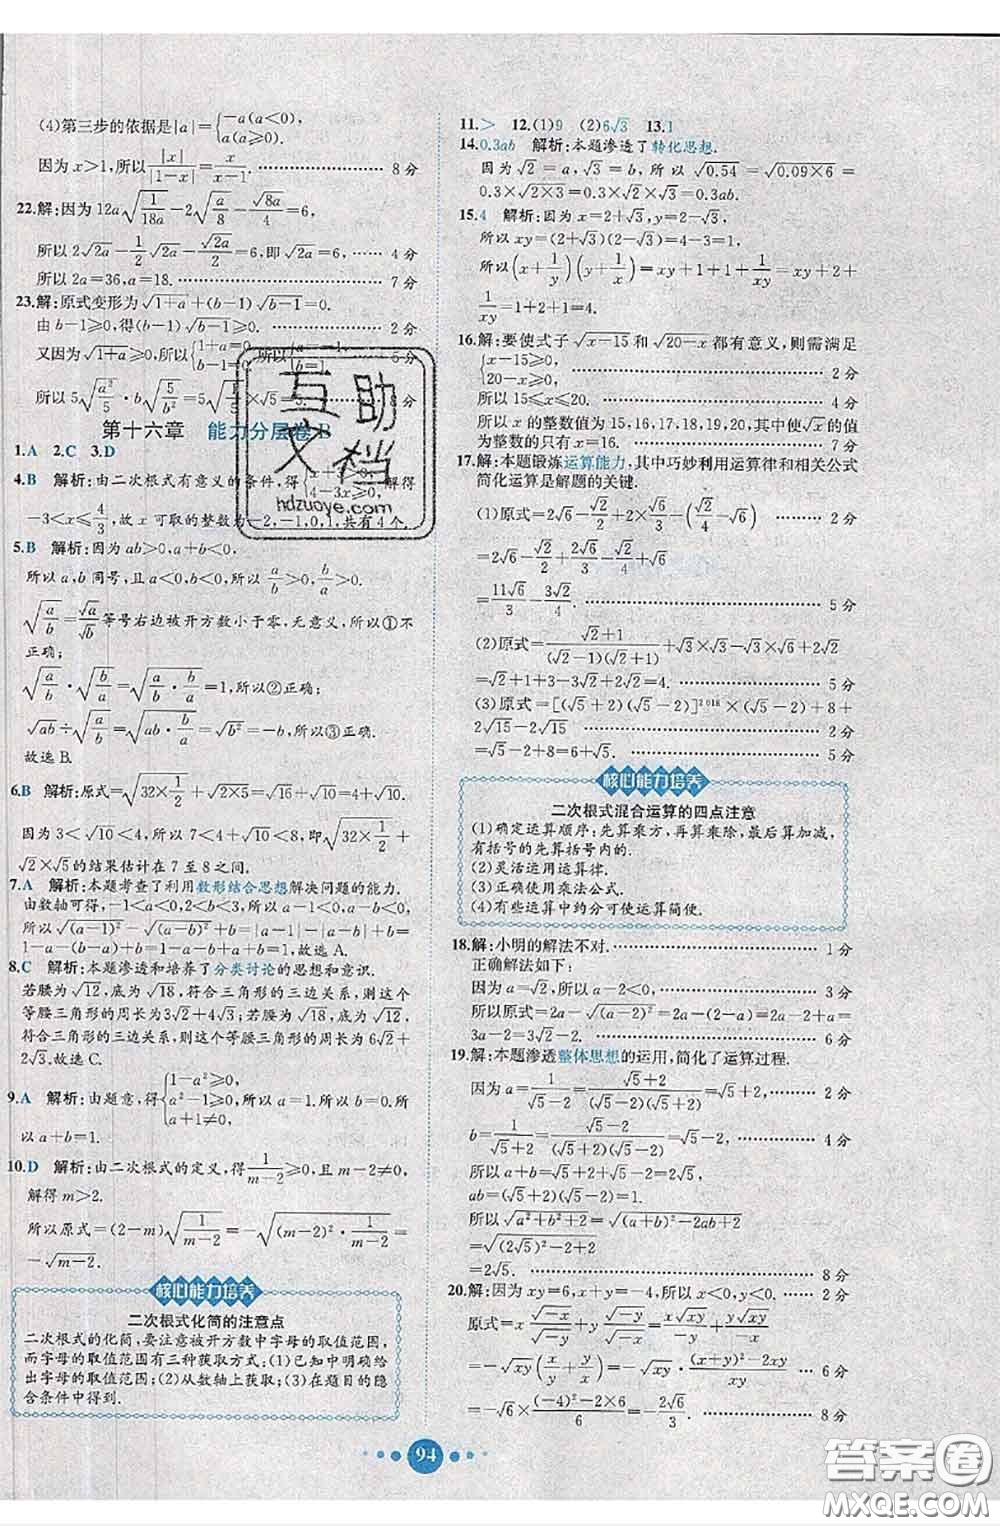 (4)第三步的依据是|a|={-a(a<0), a(a≥0).
因为x>1,所以|x|/|1-x|=x/(x-1). 8分
22.解:因为12a√(1/18a)-2√(a/8)-√(8a)/4=6,
所以2√(2a)-1/2√(2a)-√(2a)/2=6,即√(2a)=6, 4分
所以2a=36,a=18. 7分
23.解:原式变形为√(1+a)+(b-1)√(b-1)=0.
由b-1≥0,得(b-1)√(b-1)≥0. 2分
又因为√(1+a)≥0,所以{1+a=0, b-1=0,所以 5分
所以5√(a²/5)·b√(5/b²)= ×√5=5. 8分
第十六章 能力分层卷B
1.A 2.C 3.D
4.B 解析:由二次根式有意义的条件,得{x+ 0, 4-3x≥0, 解得
-3<x≤4/3,故x可取的整数为-2,-1,0,1,共有4个.
5.B 解析:因为ab>0,a+b<0,
所以a,b同号,且a<0,b<0,所以a/b>0,b/a>0.
√(a/b)=√a/√b等号右边被开方数小于零,无意义,所以①不
正确;
√(a/b)·√(b/a)=√(a/b·b/a)=√1=1,所以②正确;
√(ab)÷√(a/b)=√(ab·b/a)=√(b²)=-b,所以③正确.
故选B.
6.B 解析:原式=√(32×1/2)+√(2×5)=√16+√10=4+√10.
因为3<√10<4,所以7<4+√10<8,即√(32×1/2)+
√2×√5的结果估计在7至8之间.
7.A 解析:本题考查了利用数形结合思想解决问题的能力.
由数轴可得,-1<a<0,2<b<3,所以a-1<0,a-b<0,
所以√((a-1)²)-√((a-b)²)+b=|a-1|-|a-b|+b=
1-a-(b-a)+b=1-a-b+a+b=1,故选A.
8.C 解析:本题渗透和培养了分类讨论的思想和意识.
若腰为√12,底为√18,符合三角形的三边关系,则这个
等腰三角形的周长为3√2+4√3;若腰为√18,底为√12,
符合三角形的三边关系,则这个等腰三角形的周长为6√2+
2√3.故选C.
9.A 解析:由题意,得{1-a²≥0, a²-1≥0, a+1≠0, 解得a=1,则b=0,所
以a+b=1.
10.D 解析:由二次根式的定义,得1/(m-2)≥0,且m-2≠0,
解得m>2.
所以原式=(2-m)√(1/(m-2))=-√((m-2)²·1/(m-2))=
-√(m-2).
核心能力培养
二次根式化简的注意点
二次根式的化简,要注意被开方数中字母的取值范围,
而字母的取值范围有三种获取方式:(1)已知中明确给
出字母的取值范围;(2)从数轴上获取;(3)在题目的隐
含条件中得到.
11.> 12.(1)9 (2)6√3 13.1
14.0.3ab 解析:本题渗透了转化思想.
因为√2=a,√3=b,所以√0.54=√(0.09×6)=
0.3×√(2×3)=0.3×√2×√3=0.3ab.
15.4 解析:因为x=2+√3,y=2-√3,
所以xy=(2+√3)(2-√3)=4-3=1,
所以(x+1/y)(y+1/x)=xy+1+1+1/xy=xy+2+
1/xy=1+2+1=4.
16.解:要使式子√(x-15)和√(20-x)都有意义,则需满足
{x-15≥0, 20-x≥0. 2分
所以15≤x≤20. 4分
所以x的整数值为15,16,17,18,19,20,其中x为偶
数的只有x=16. 7分
17.解:本题锻炼运算能力,其中巧妙利用运算律和相关公式
简化运算是解题的关键.
(1)原式=2√6-√2/2+2×√6/3-(√2/4-√6) 2分
=2√6-√2/2+2√6/3-√2/4+√6
=11√6/3-3√2/4. 5分
(2)原式=(√2+1)/((√2-1)(√2+1))+√3×√3-√3×√6+2√2
=√2+1+3-3√2+2√2=4. 5分
(3)原式=[(√5+2)(√5-2)]²⁰¹⁸×(√5-2)+8+
2√15-2√15 2分
=√5-2+8=6+√5. 5分
核心能力培养
二次根式混合运算的四点注意
(1)确定运算顺序:先算乘方,再算乘除,最后算加减,
有括号的先算括号内的.
(2)灵活运用运算律.
(3)正确使用乘法公式.
(4)有些运算中约分可使运算简便.
18.解:小明的解法不对. 1分
正确解法如下:
因为a=√2,所以a-2<0. 3分
所以原式=2a-√((a-2)²)=2a-(2-a)=2a-2+a=
3a-2=3√2-2. 6分
19.解:本题渗透整体思想的运用,简化了运算过程.
因为a=1/(√5-2)=(√5+2)/((√5-2)(√5+2))=√5+2, 2分
b=1/(√5+2)=(√5-2)/((√5+2)(√5-2))=√5-2, 4分
所以a+b=√5+2+√5-2=2√5,
ab=(√5+2)(√5-2)=1.
所以√(a²+b²+2)=√((a+b)²-2ab+2)
=√((2√5)²-2+2)
=2√5. 8分
20.解:因为xy=6,x+y=-4,所以x<0,y<0.
原式=x√(-y)/√(-x)+y√(-x)/√(-y)=x√(xy)/(-x)+y√(xy)/(-y)
=-√(xy)(x/y+y/x)=-√(xy)·((x+y)²-2xy)/xy 6分
=-√6×((-4)²-2×6)/6=-2√6/3. 8分
94
互助
文档
hdzuoye.com
答案圈
MXQE.COM